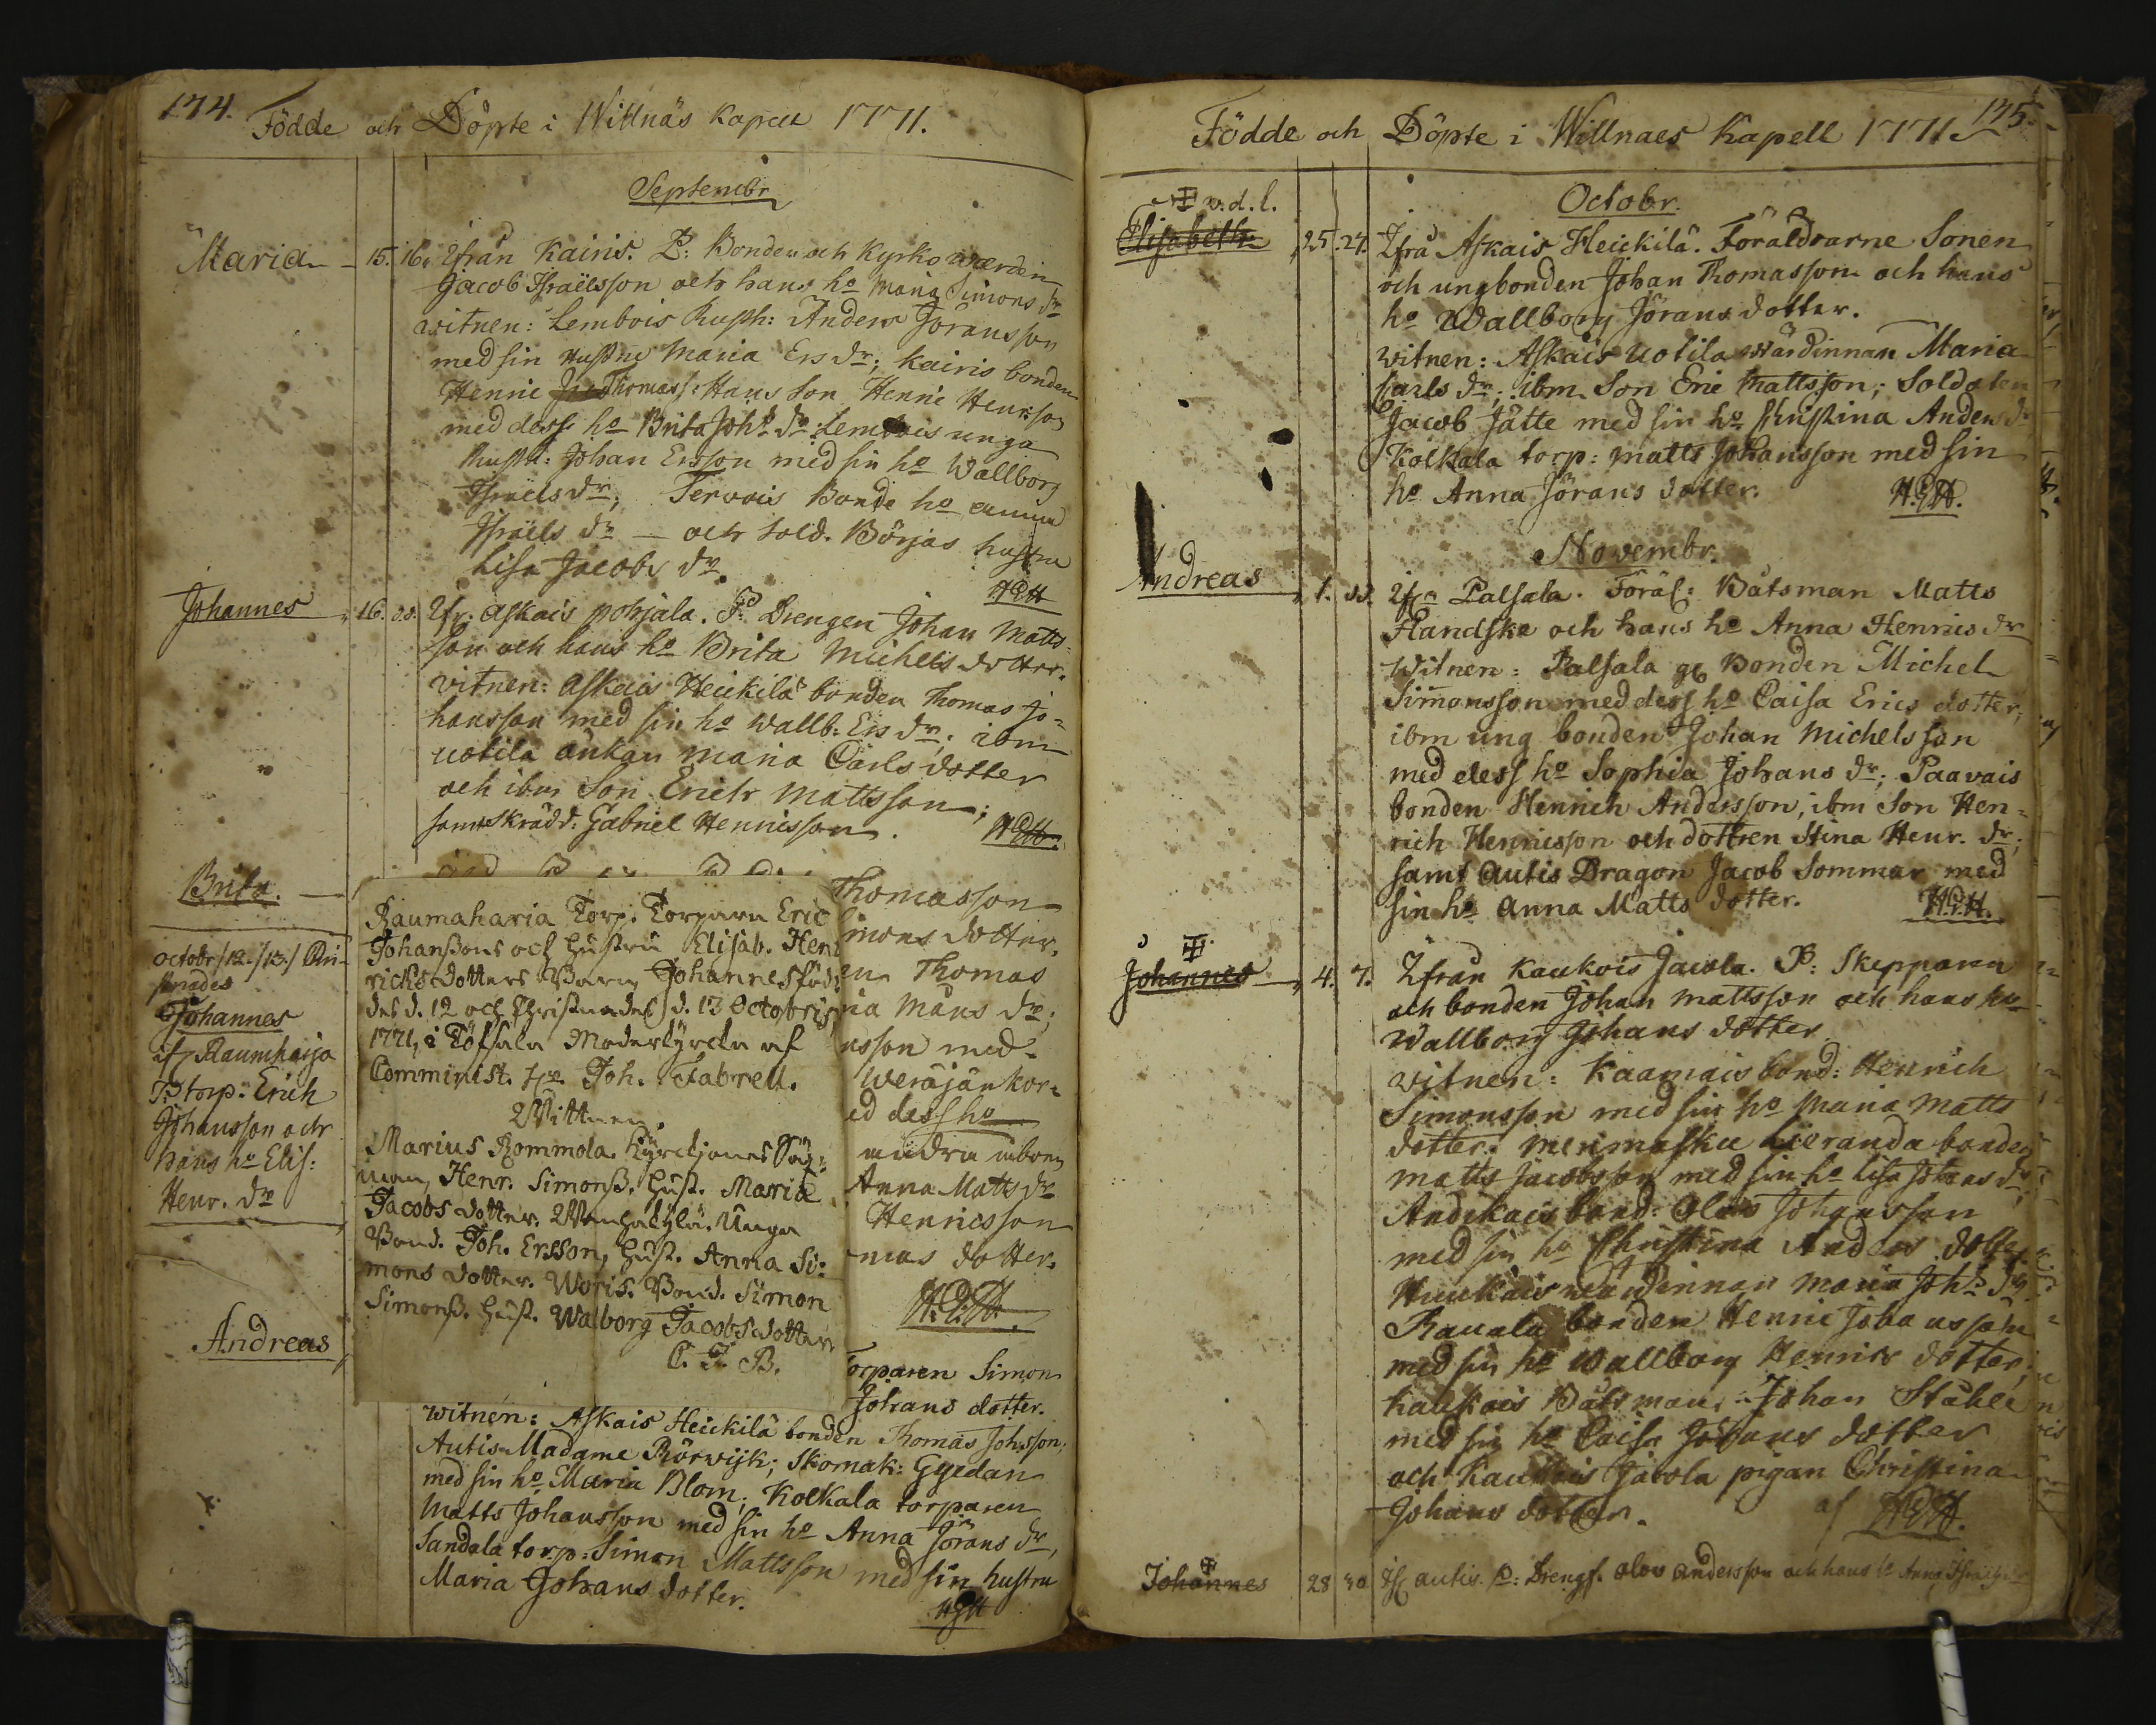 174.
Födde och Döpte i Willnäs Kapell 1771.
Septembr
Maria 15. 16. Ifrån Kairis. P: Bonden och Kyrkowärden
Jacob Israelsson och hans ho Maria Simons dr
witnen: Lembois Rusth: Anders Jöransson
med sin Hustru Maria Ers dr; Kairis bonden
Henric Thomass: Hans Son Henric Henrsson
med dess ho Brita Johs dr: Lembois unga
Rusth: Johan Ersson med sin ho Wallborg
Israels dr; Tervois Bonde ho Anna
Israels dr — och Sold. Börjas hustru
Lisa Jacobs dr.
HGH
Johannes 16. d.d. Ifr: Askais Pohjala. Fr Drengen Johan Matts-
son och hans ho Brita Michels dotter.
vitnen: Askais Heickilä bonden Thomas Jo=
hansson med sin ho Wallb: Ers dr; ibm
uotila änkan Maria Carls dotter
och ibm Son Erich Mattsson;
samt Skrädd: Gabriel Henricsson.
HGH
Brita.
Thomasson
imons dotter.
en Thomas
ria Måns dr;
nsson med
Weräjänkor=
ed dess ho
Anna Matts dr
Henricsson
mas dotter.
H.G.H.
octobr /12./13./ Chri-
stnades
Johannes
if. Raumharja
P: torp: Erich
Johansson och
hans ho Elis:
Henr. dr
Raumaharia Torp. Torparn Eric
Johanssons och hustru Elisab. Hen
richsdotters Barn Johannes föd-
des d. 12 och Christnades d. 13 Octobris
1771, i Töfsala Moderkyrcka af
Comminist. Joh. Fabrell.
Vittnen
Marius Rommola.
Henr. Simonss. Hust. Maria
Jacobs dotter. Unga
Bond. Joh. Ersson, Hust. Anna Si:
mons dotter. Woris. Bond. Simon
Simonss. Hust. Walborg Jacobsdotter
C. F. B.
Andreas
Torparen Simon
Johans dotter.
witnen: Askais Heickilä bonden Thomas Johsson;
Autis Madame Rörwijk; Skomak: Gyedan
med sin ho Maria Blom; Kolkala torparen
Matts Johansson med sin ho Anna Jörans dr,
Sandala torp: Simon Mattsson med sin hustru
Maria Johans dotter.
HGH
Födde och Döpte i Willnaes Kapell 1771.
175.
Octobr.
v.d.l.
Elisabeth 25. 27. Ifrå Askais Heickilä. Föräldrarne Sonen
och ungbonden Johan Thomasson och hans
ho Wallborg Jörans dotter.
witnen: Askais Uotila Wärdinnan Maria
Carls dr; ibm Son Eric Mattsson; Soldaten
Jacob Jätte med sin ho Christina Anders dr
Kolkala torp: Matts Johansson med sin
ho Anna Jörans dotter.
H.G.H.
Novembr.
Andreas 1. Palsala. Föräl: Båtsman Matts
Handske och hans ho Anna Henrics dr
Witnen: Palsala Bonden Michel
Simonsson med dess ho Caisa Erics dotter,
ibm ung bonden Johan Michelsson
med dess ho Sophia Johans dr; Paavais
bonden Henrich Andersson, ibm Son Hen=
rich Henricsson och dottren Stina Henr. dr;
samt Autis Dragon Jacob Sommar med
sin ho Anna Matts dotter.
H.G.H.
Johannes 4. 7. Ifrån Kaukois Jacola. P: Skepparen
och bonden Johan Mattsson och hans ho
Wallborg Johans dotter
witnen: Kaamais bond: Henrich
Simonsson med sin ho Maria Matts
dotter. Merimasku Lieranda bonden
Matts Jacobsson med sin ho Lisa Johans dr;
Andikais bond: Olavs Johansson
med sin ho Christina Anders dotter
Maria Johs dr
Rauala bonden Henric Johansson
med sin ho Wallborg Henrics dotter,
Kaukois Båtsman: Johan Ståhle
med sin ho Caisa Johans dotter
och Kaukois Jacola pigan Christina
Johans dotter.
af HGH.
Johannes 28 30 Autis. P: Drengs. Olov Andersson och hans ho Anna